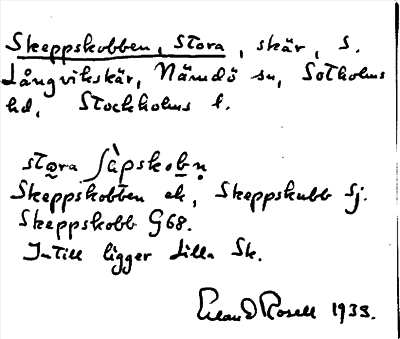 Skeppskobben, Stora, skär, S.
Långvikskär, Nämdö sn, Sotholms
hd, Stockholms l.
stora ʃàpskobn̥
Skeppskobben ek, Skeppskubb Sj.
Skeppskobb G68.
Intill ligger Lilla Sk.
Erland Rosell 1933.